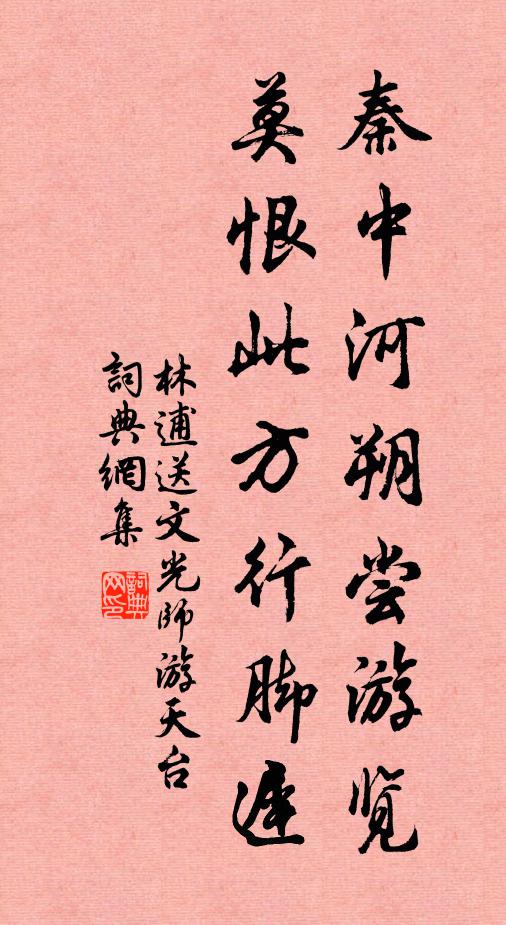 秦中河朔尝游览
莫恨此方行脚遲
林逋送文光師游天台
詞典網集
詞典网印